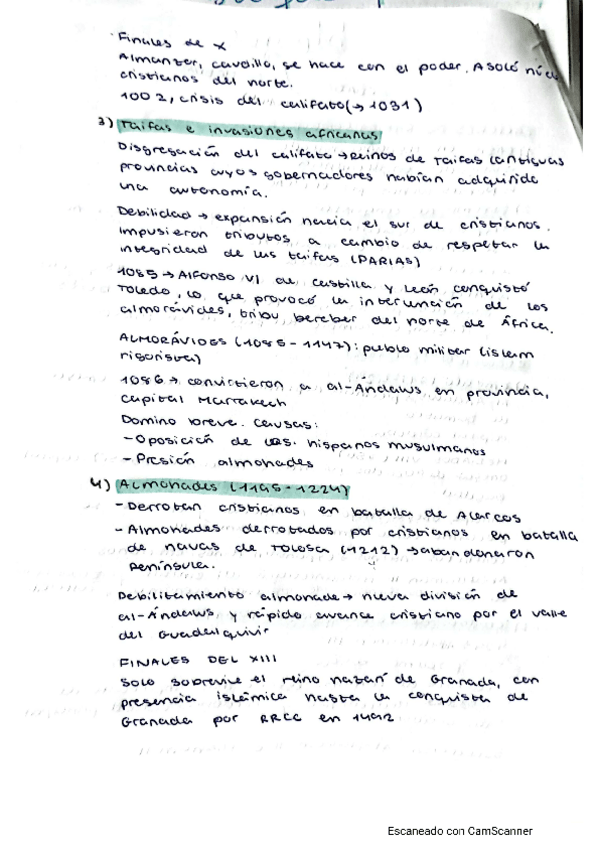 Finales de X
Almanzor, caudillo, se hace con el poder. Asoló núcleos
cristianos del norte.
1002, crisis del califato (→ 1031)
3) Taifas e invasiones africanas
Disgregación del califato → reinos de Taifas (antiguas
provincias cuyos gobernadores habían adquirido
una autonomía.
Debilidad → expansión hacia el sur de cristianos.
Impusieron tributos a cambio de respetar la
integridad de las taifas (PARIAS)
1085 → Alfonso VI de Castilla y León conquistó
Toledo, lo que provocó la intervención de los
almorávides, tribu bereber del norte de África.
ALMORÁVIDES (1085-1147): pueblo militar (islam
rigorista)
1086 → convirtieron a al-Ándalus en provincia,
capital Marrakech
Domino breve. Causas:
- Oposición de los hispanos musulmanes
- Presión almohades
4) Almohades (1195-1224)
- Derrotan cristianos en batalla de Alarcos
- Almohades derrotados por cristianos en batalla
de navas de Tolosa (1212) → abandonaron
Península.
Debilitamiento almohade → nueva división de
al-Ándalus y rápido avance cristiano por el valle
del Guadalquivir
FINALES DEL XIII
Solo sobrevive el reino nazarí de Granada, con
presencia islámica hasta la conquista de
Granada por RRCC en 1492
Escaneado con CamScanner